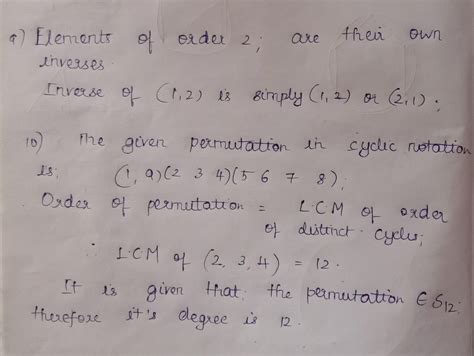 9) Elements of order 2; are their own
inverses.
Inverse of (1,2) is simply (1,2) or (2,1);
10) The given permutation in cyclic notation
is; (1, 9)(2 3 4)(5 6 7 8);
Order of permutation = L.C.M of order
of distinct cycles;
∴ L.C.M of (2, 3, 4) = 12.
It is given that; the permutation ∈ S12;
therefore it's degree is 12.